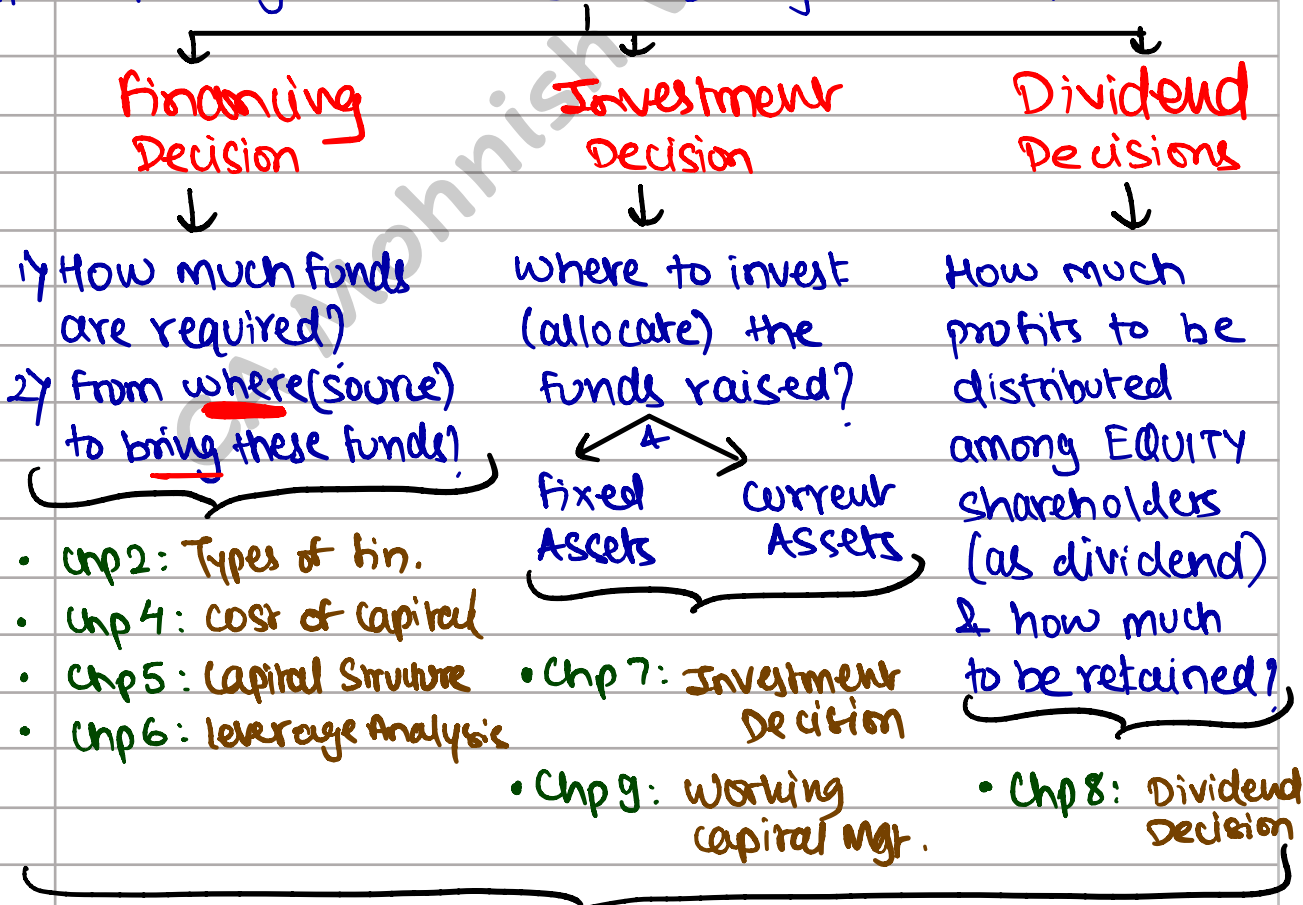 Financing
Decision
Investment
Decision
Dividend
Decisions
1) How much funds
are required?
2) From where (source)
to bring these funds?
• Chp2: Types of fin.
• Chp 4: Cost of Capital
• Chp5: Capital Structure
• Chp6: Leverage Analysis
Where to invest
(allocate) the
funds raised?
&
Fixed
Assets
Current
Assets
• Chp 7: Investment
Decision
• Chp 9: Working
Capital Mgt.
How much
profits to be
distributed
among EQUITY
shareholders
(as dividend)
& how much
to be retained?
• Chp 8: Dividend
Decision
CA Mohnish